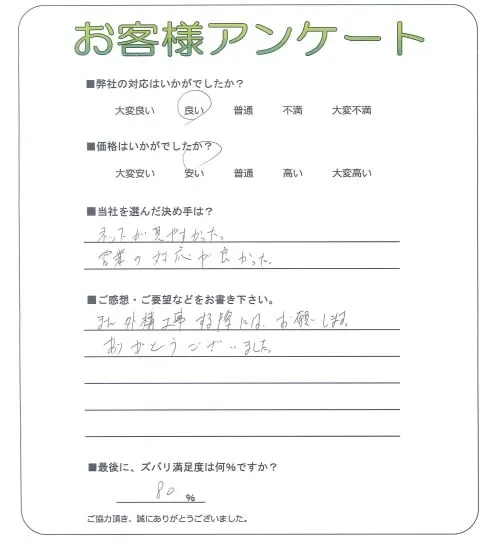 お客様アンケート
■弊社の対応はいかがでしたか？
大変良い 良い 普通 不満 大変不満
■価格はいかがでしたか？
大変安い 安い 普通 高い 大変高い
■当社を選んだ決め手は？
ネットが見やすかった。
営業の対応が良かった。
■ご感想・ご要望などをお書き下さい。
また外構工事する際には、お願いします。
ありがとうございました。
■最後に、ズバリ満足度は何%ですか？
80 %
ご協力頂き、誠にありがとうございました。